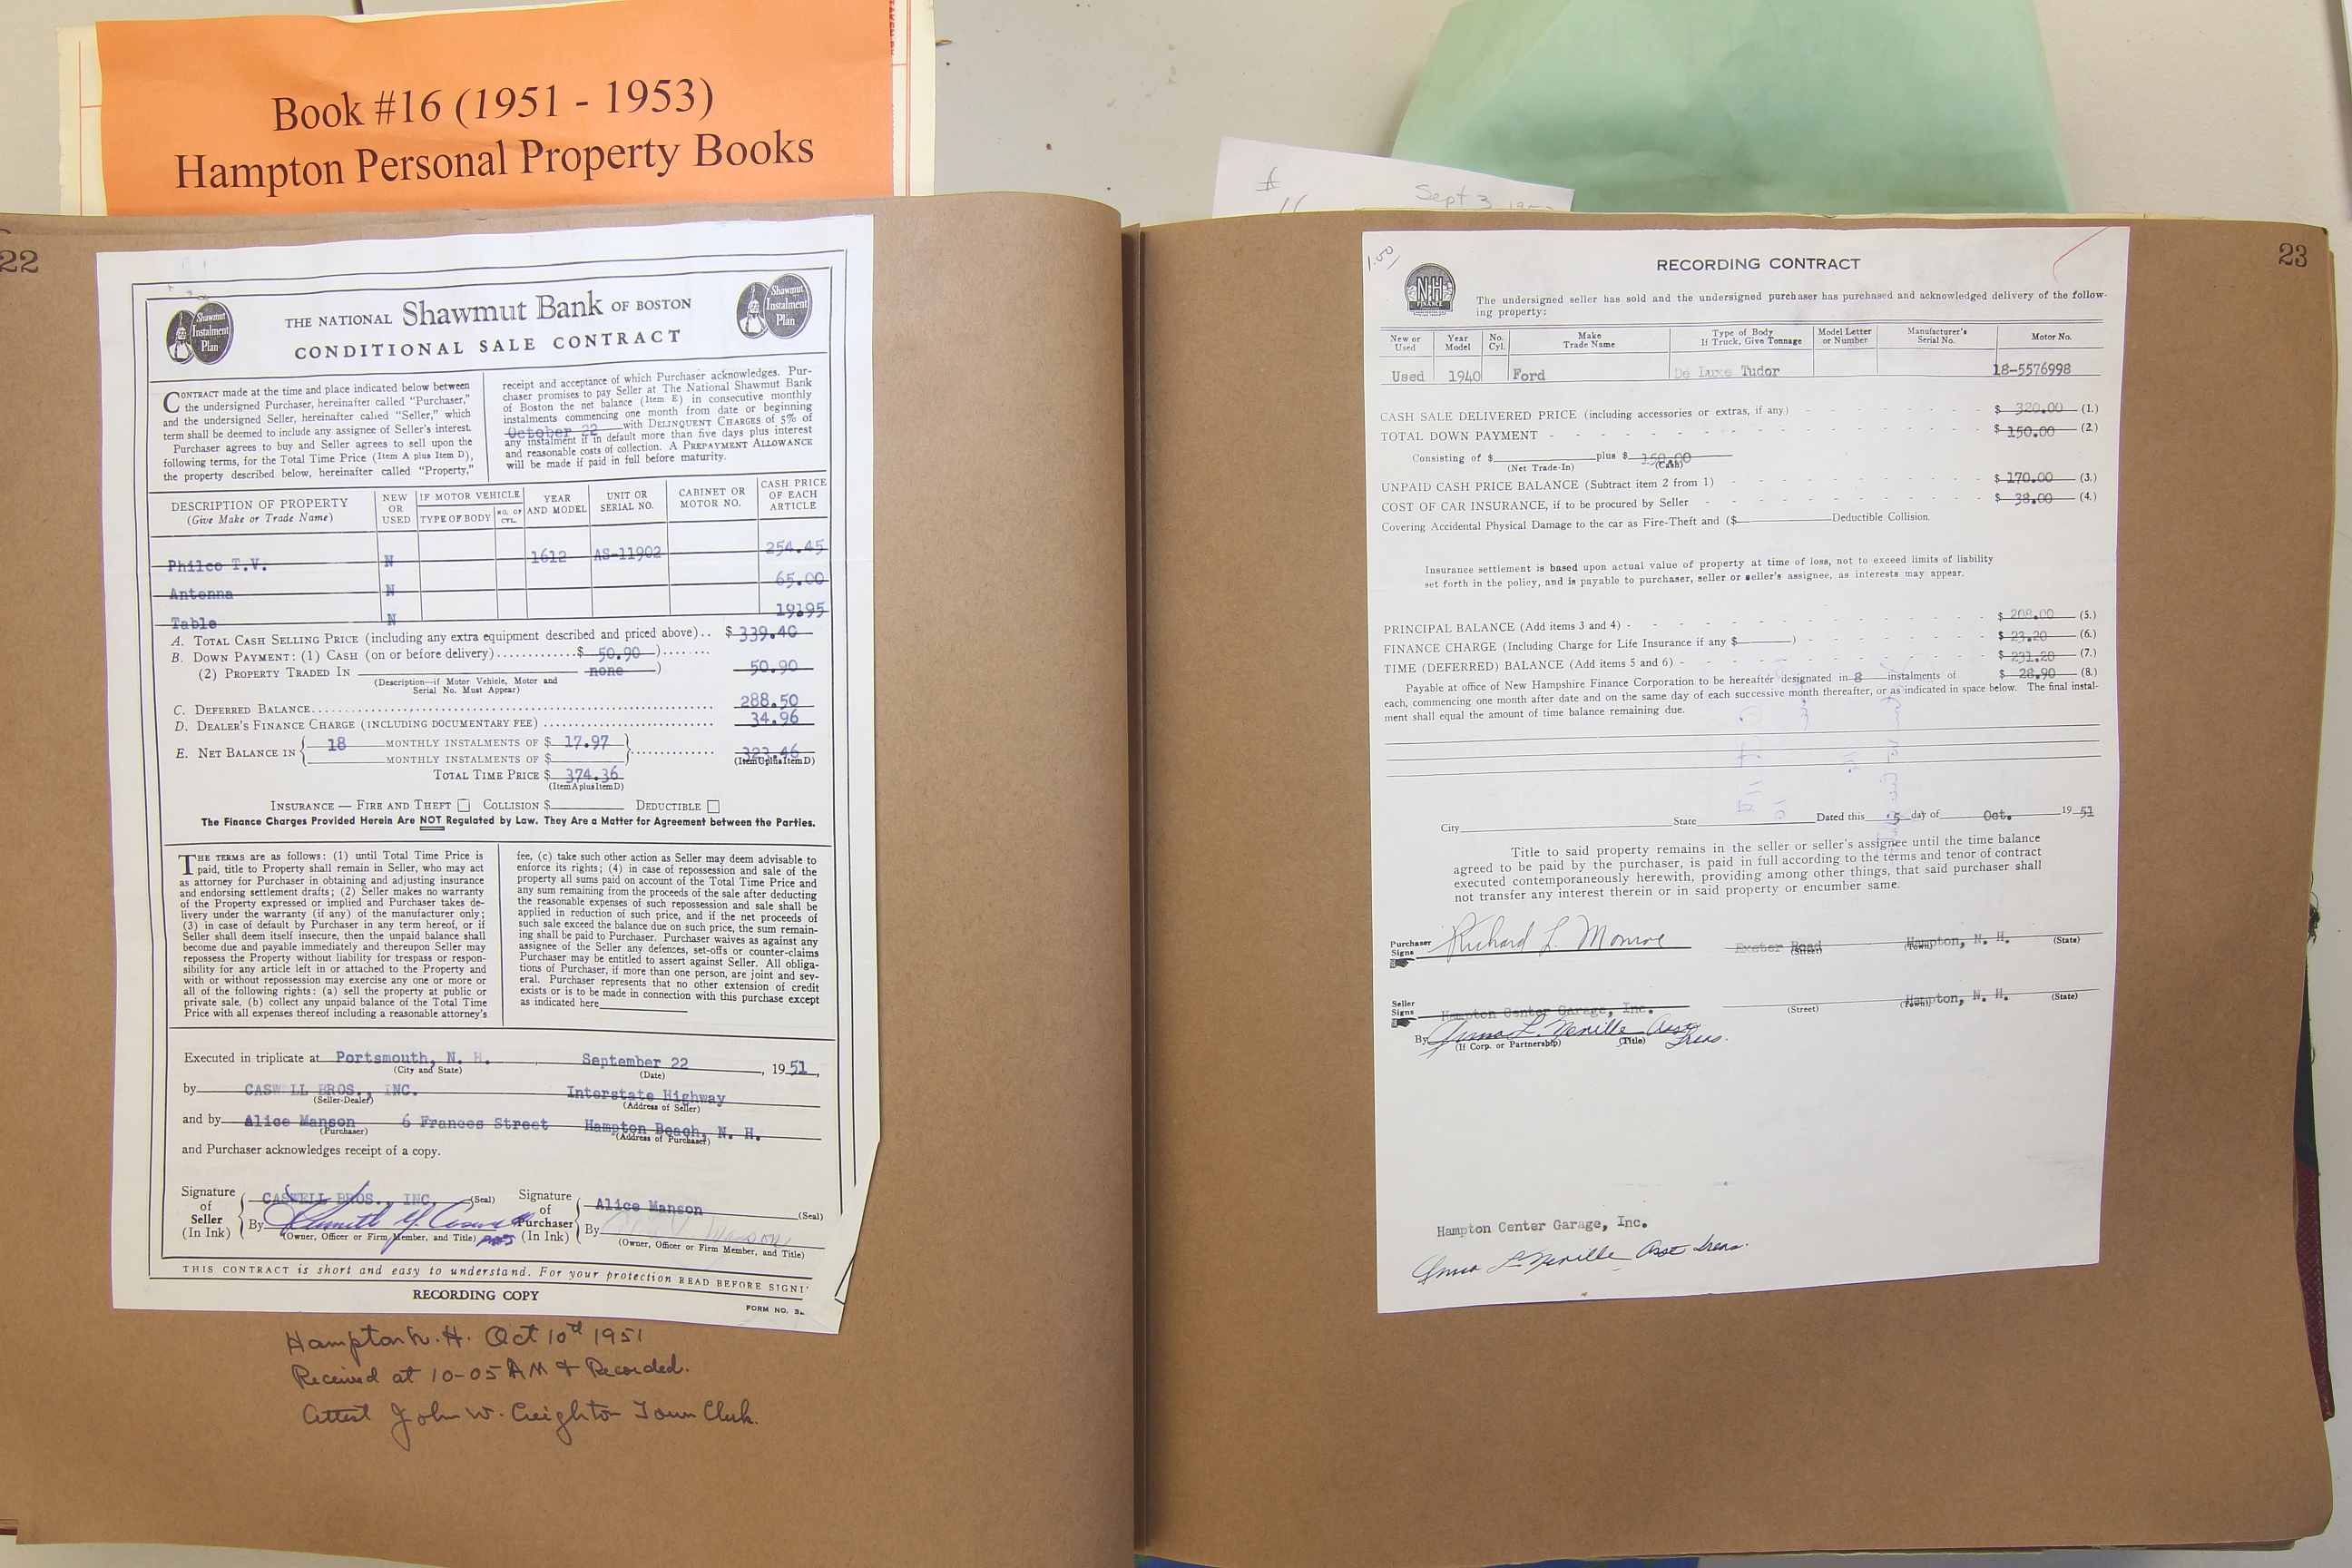 Book #16 (1951 - 1953)
Hampton Personal Property Books
Sept 3
22
Shawmut
Instalment
Plan
THE NATIONAL Shawmut Bank OF BOSTON
CONDITIONAL SALE CONTRACT
Shawmut
Instalment
Plan
CONTRACT made at the time and place indicated below between
the undersigned Purchaser, hereinafter called "Purchaser,"
and the undersigned Seller, hereinafter called "Seller," which
term shall be deemed to include any assignee of Seller's interest.
Purchaser agrees to buy and Seller agrees to sell upon the
following terms, for the Total Time Price (Item A plus Item D),
the property described below, hereinafter called "Property,"
receipt and acceptance of which Purchaser acknowledges. Pur-
chaser promises to pay Seller at The National Shawmut Bank
of Boston the net balance (Item E) in consecutive monthly
instalments commencing one month from date or beginning
October 22 with DELINQUENT CHARGES of 5% of
any instalment if in default more than five days plus interest
and reasonable costs of collection. A PREPAYMENT ALLOWANCE
will be made if paid in full before maturity.
DESCRIPTION OF PROPERTY
(Give Make or Trade Name)
NEW
OR
USED
IF MOTOR VEHICLE
TYPE OF BODY
NO. OF
CYL.
YEAR
AND MODEL
UNIT OR
SERIAL NO.
CABINET OR
MOTOR NO.
CASH PRICE
OF EACH
ARTICLE
Philco T.V. N 1612 AS-11902 254.45
Antenna N 65.00
Table N 19.95
A. TOTAL CASH SELLING PRICE (including any extra equipment described and priced above).. $ 339.40
B. DOWN PAYMENT: (1) CASH (on or before delivery)............$ 50.90 )......
(2) PROPERTY TRADED IN none ) 50.90
(Description—if Motor Vehicle, Motor and
Serial No. Must Appear)
C. DEFERRED BALANCE.......... 288.50
D. DEALER'S FINANCE CHARGE (INCLUDING DOCUMENTARY FEE) .......... 34.96
E. NET BALANCE IN { 18 MONTHLY INSTALMENTS OF $ 17.97 } .......... 323.46
MONTHLY INSTALMENTS OF $ (Item C plus Item D)
TOTAL TIME PRICE $ 374.36
(Item A plus Item D)
INSURANCE — FIRE AND THEFT COLLISION $ DEDUCTIBLE
The Finance Charges Provided Herein Are NOT Regulated by Law. They Are a Matter for Agreement between the Parties.
THE TERMS are as follows: (1) until Total Time Price is
paid, title to Property shall remain in Seller, who may act
as attorney for Purchaser in obtaining and adjusting insurance
and endorsing settlement drafts; (2) Seller makes no warranty
of the Property expressed or implied and Purchaser takes de-
livery under the warranty (if any) of the manufacturer only;
(3) in case of default by Purchaser in any term hereof, or if
Seller shall deem itself insecure, then the unpaid balance shall
become due and payable immediately and thereupon Seller may
repossess the Property without liability for trespass or respon-
sibility for any article left in or attached to the Property and
with or without repossession may exercise any one or more or
all of the following rights: (a) sell the property at public or
private sale, (b) collect any unpaid balance of the Total Time
Price with all expenses thereof including a reasonable attorney's
fee, (c) take such other action as Seller may deem advisable to
enforce its rights; (4) in case of repossession and sale of the
property all sums paid on account of the Total Time Price and
any sum remaining from the proceeds of the sale after deducting
the reasonable expenses of such repossession and sale shall be
applied in reduction of such price, and if the net proceeds of
such sale exceed the balance due on such price, the sum remain-
ing shall be paid to Purchaser. Purchaser waives as against any
assignee of the Seller any defences, set-offs or counter-claims
Purchaser may be entitled to assert against Seller. All obliga-
tions of Purchaser, if more than one person, are joint and sev-
eral. Purchaser represents that no other extension of credit
exists or is to be made in connection with this purchase except
as indicated here
Executed in triplicate at Portsmouth, N. H. , September 22 , 19 51,
(City and State) (Date)
by CASWELL BROS., INC. Interstate Highway
(Seller-Dealer) (Address of Seller)
and by Alice Manson 6 Frances Street Hampton Beach, N. H.
(Purchaser) (Address of Purchaser)
and Purchaser acknowledges receipt of a copy.
Signature
of
Seller
(In Ink)
CASWELL BROS., INC. (Seal)
By
(Owner, Officer or Firm Member, and Title)
Signature
of
Purchaser
(In Ink)
Alice Manson (Seal)
By Alice Manson
(Owner, Officer or Firm Member, and Title)
THIS CONTRACT is short and easy to understand. For your protection READ BEFORE SIGNI
RECORDING COPY
FORM NO.
Hampton N. H. Oct 10th 1951
Received at 10-05 AM & Recorded.
Attest John W. Creighton Town Clerk.
23
1.50
NH
FINANCE
RECORDING CONTRACT
The undersigned seller has sold and the undersigned purchaser has purchased and acknowledged delivery of the follow-
ing property:
New or
Used
Year
Model
No.
Cyl.
Make
Trade Name
Type of Body
If Truck, Give Tonnage
Model Letter
or Number
Manufacturer's
Serial No.
Motor No.
Used 1940 Ford De Luxe Tudor 18-5576998
CASH SALE DELIVERED PRICE (including accessories or extras, if any) - - - $ 320.00 (1.)
TOTAL DOWN PAYMENT - - - $ 150.00 (2.)
Consisting of $ plus $ 150.00
(Net Trade-In) (Cash)
UNPAID CASH PRICE BALANCE (Subtract item 2 from 1) - - - $ 170.00 (3.)
COST OF CAR INSURANCE, if to be procured by Seller - - - $ 38.00 (4.)
Covering Accidental Physical Damage to the car as Fire-Theft and ($ Deductible Collision.
Insurance settlement is based upon actual value of property at time of loss, not to exceed limits of liability
set forth in the policy, and is payable to purchaser, seller or seller's assignee, as interests may appear.
PRINCIPAL BALANCE (Add items 3 and 4) - - - $ 208.00 (5.)
FINANCE CHARGE (Including Charge for Life Insurance if any $ ) - - - $ 23.20 (6.)
TIME (DEFERRED) BALANCE (Add items 5 and 6) - - - $ 231.20 (7.)
Payable at office of New Hampshire Finance Corporation to be hereafter designated in 8 instalments of $ 28.90 (8.)
each, commencing one month after date and on the same day of each successive month thereafter, or as indicated in space below. The final instal-
ment shall equal the amount of time balance remaining due.
City State Dated this 5 day of Oct. 19 51
Title to said property remains in the seller or seller's assignee until the time balance
agreed to be paid by the purchaser, is paid in full according to the terms and tenor of contract
executed contemporaneously herewith, providing among other things, that said purchaser shall
not transfer any interest therein or in said property or encumber same.
Purchaser
Signs
Richard L. Monroe Exeter Road Hampton, N. H. (State)
(Street) (Town)
Seller
Signs
Hampton Center Garage, Inc. Hampton, N. H. (State)
(Street) (Town)
By L. Neville Asst Treas.
(If Corp. or Partnership) (Title)
Hampton Center Garage, Inc.
L. Neville Asst Treas.